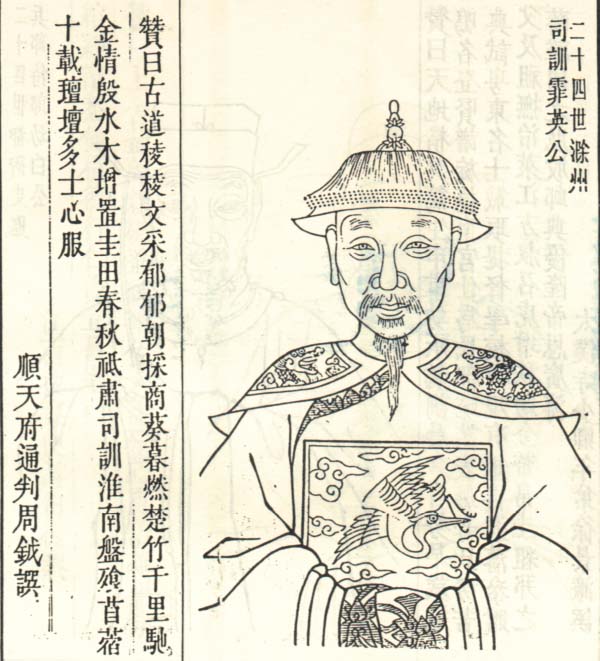 二十四世滁州
司訓霏英公
贊曰古道稜稜文采郁郁朝採商葵暮燃楚竹千里馳
金情殷水木增置圭田春秋祗肅司訓淮南盤飱苜蓿
十載璮壇多士心服
順天府通判周鉞譔